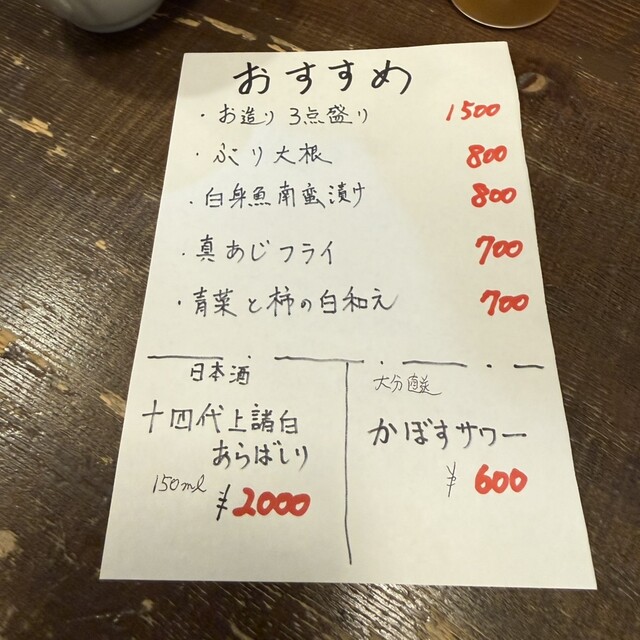 おすすめ
・お造り 3点盛り 1500
・ぶり大根 800
・白身魚南蛮漬け 800
・真あじフライ 700
・青菜と柿の白和え 700
日本酒
十四代上諸白
あらばしり
150ml ¥2000
大分直送
かぼすサワー
¥600